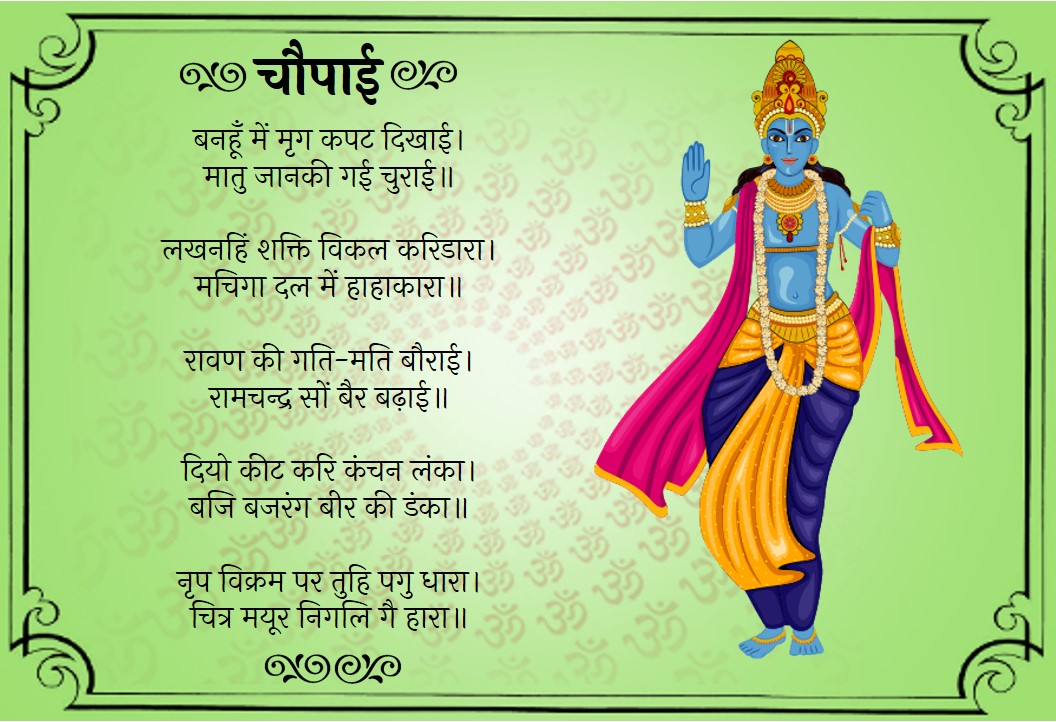 चौपाई
बनहूँ में मृग कपट दिखाई।
मातु जानकी गई चुराई॥
लखनहिं शक्ति विकल करिडारा।
मचिगा दल में हाहाकारा॥
रावण की गति-मति बौराई।
रामचन्द्र सों बैर बढ़ाई॥
दियो कीट करि कंचन लंका।
बजि बजरंग बीर की डंका॥
नृप विक्रम पर तुहि पगु धारा।
चित्र मयूर निगलि गै हारा॥